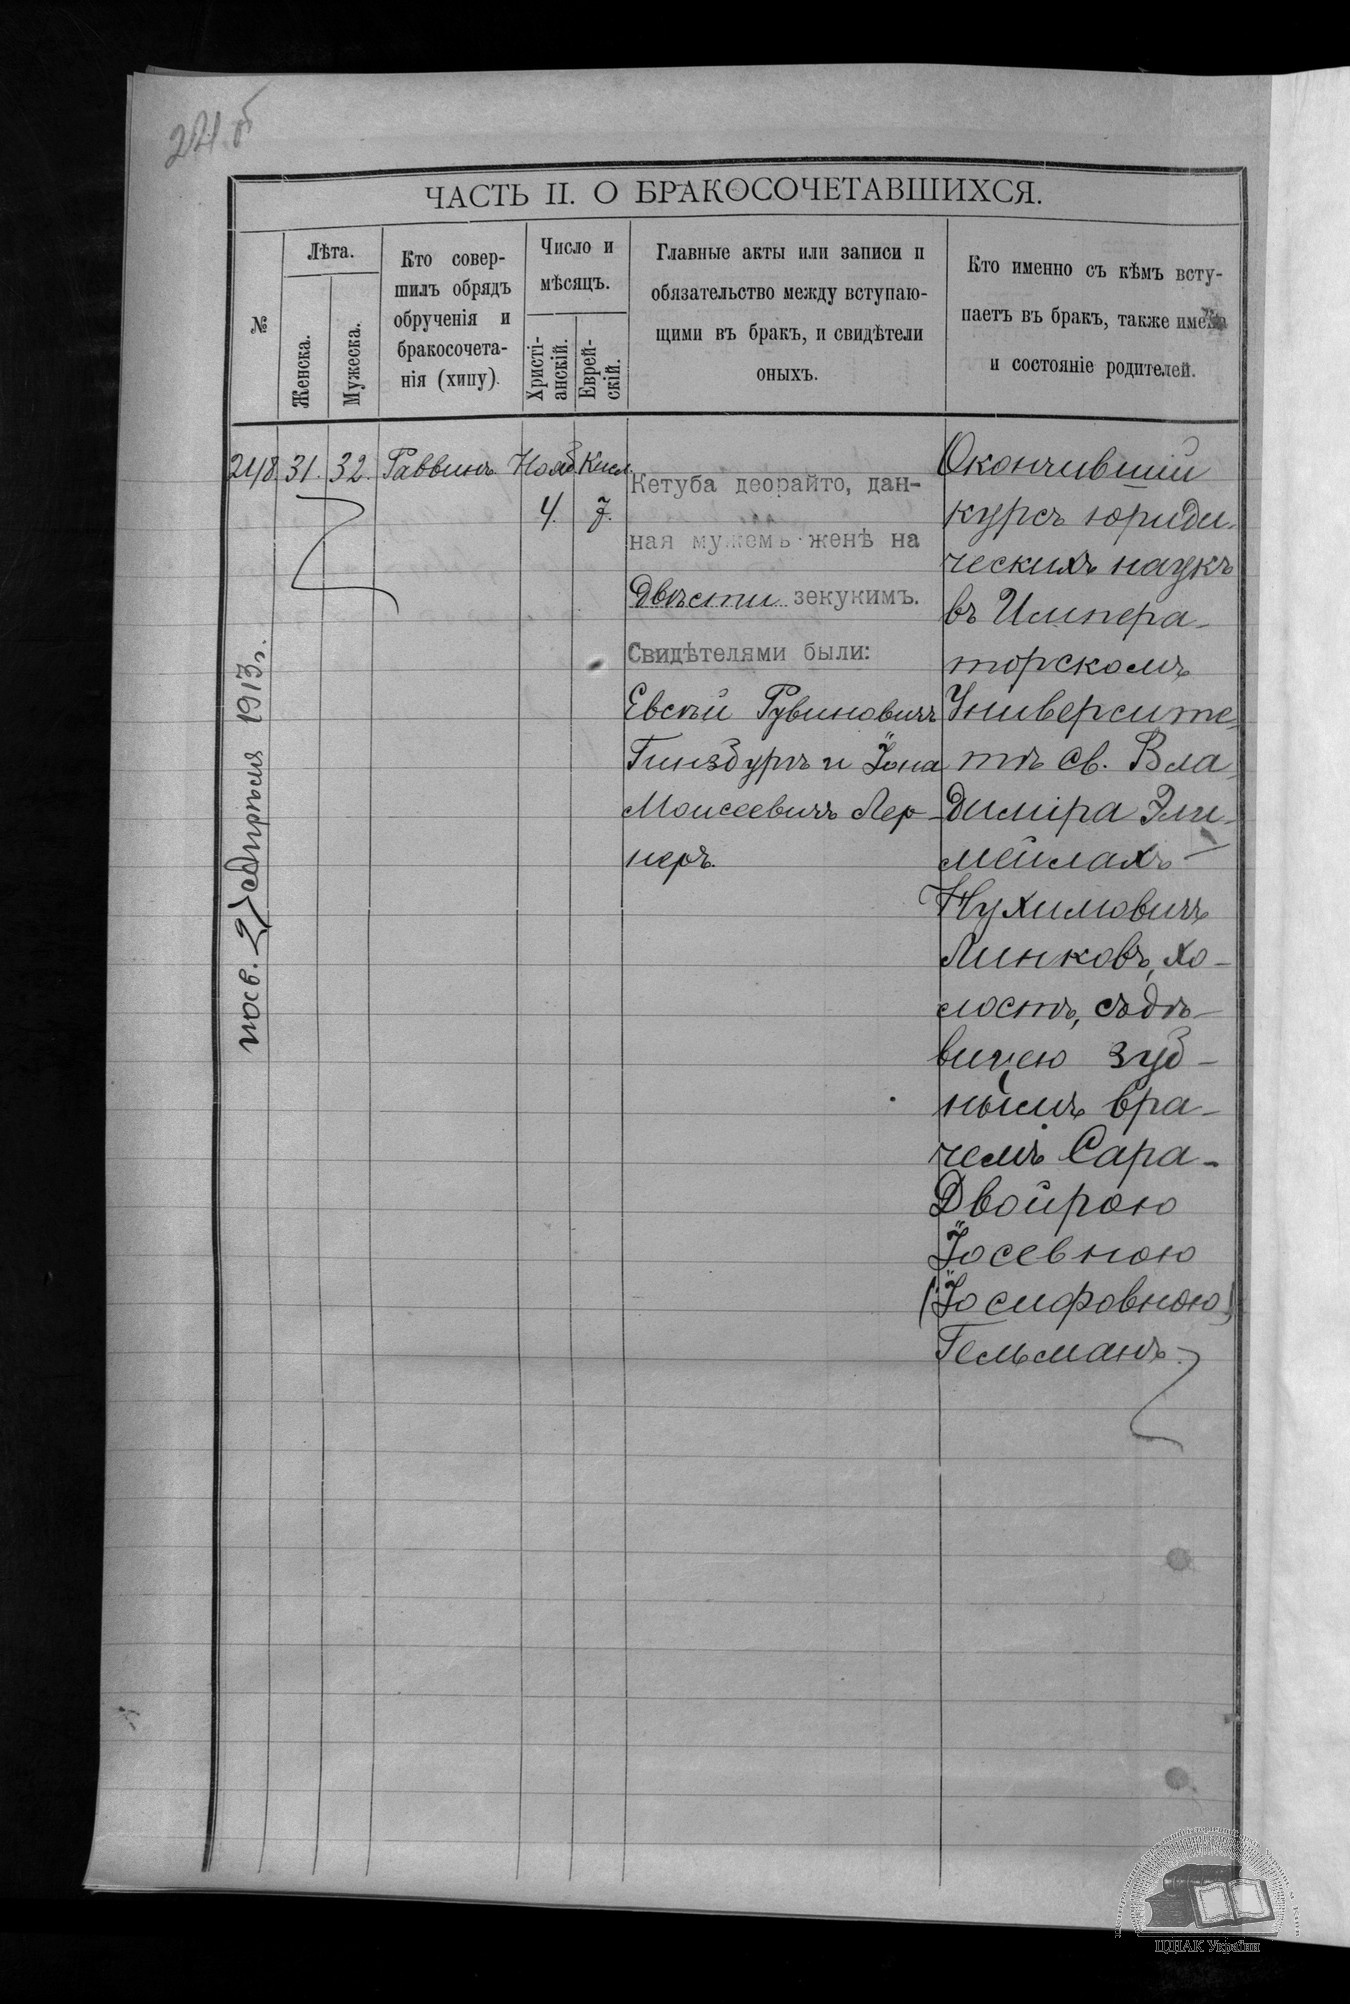 ЧАСТЬ II. О БРАКОСОЧЕТАВШИХСЯ.
№
Лѣта.
Женска.
Мужеска.
Кто совер-
шилъ обрядъ
обрученія и
бракосочета-
нія (хипу).
Число и
мѣсяцъ.
Христі-
анскій.
Еврей-
скій.
Главные акты или записи и
обязательство между вступаю-
щими въ бракъ, и свидѣтели
оныхъ.
Кто именно съ кѣмъ всту-
паетъ въ бракъ, также имена
и состояніе родителей.
248. 31. 32. Раввинъ Нояб. Кисл.
4. 7.
Кетуба деорайто, дан-
ная мужемъ женѣ на
двѣсти зекукимъ.
Свидѣтелями были:
Евсѣй Рувиновичъ
Гинзбургъ и Іона
Моисеевичъ Лер-
неръ.
Окончившій
курсъ юриди-
ческихъ наукъ
въ Импера-
торскомъ
Университе-
тѣ св. Вла-
диміра Эли-
мейлахъ-
Нухимовичъ
Линковъ, хо-
лостъ, съ дѣ-
вицею зуб-
нымъ вра-
чемъ Сара-
Двойрою
Іосевною
(Іосифовною)
Гельманъ.
1913 г.
ЦДІАК України